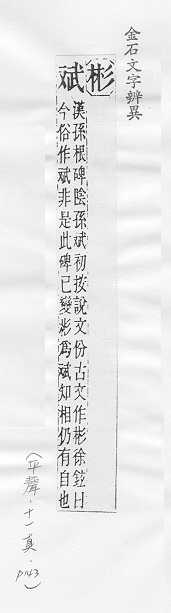 金石文字辨異
彬 斌
漢孫根碑陰孫斌初按說文份古文作彬徐鉉曰
今俗作斌非是此碑已變彬爲斌知相仍有自也
(平聲．十一真．p143)